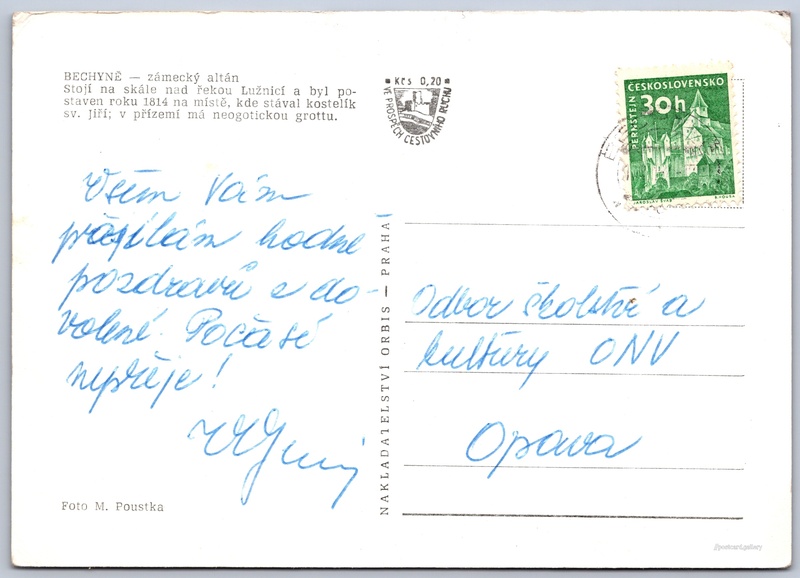 BECHYNĚ — zámecký altán
Stojí na skále nad řekou Lužnicí a byl po-
staven roku 1814 na místě, kde stával kostelík
sv. Jiří; v přízemí má neogotickou grottu.
Kčs 0,20
VE PROSPĚCH CESTOVNÍHO RUCHU
ČESKOSLOVENSKO
PERNŠTEJN
30h
JAROSLAV ŠVÁB
Všem Vám
přesílám hodně
pozdravů z do-
volené. Počasí
nepřeje!
NAKLADATELSTVÍ ORBIS — PRAHA
Odbor školství a
kultury ONV
Opava
Foto M. Poustka